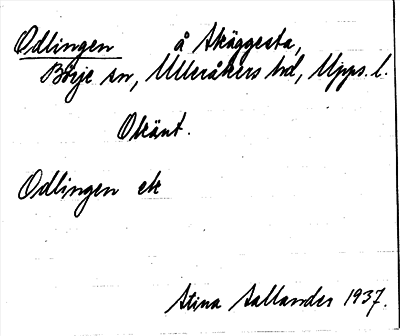 Odlingen å Skäggesta,
Börje sn, Ulleråkers hd, Upps. l.
Okänt.
Odlingen ek
Stina Sallander 1937.